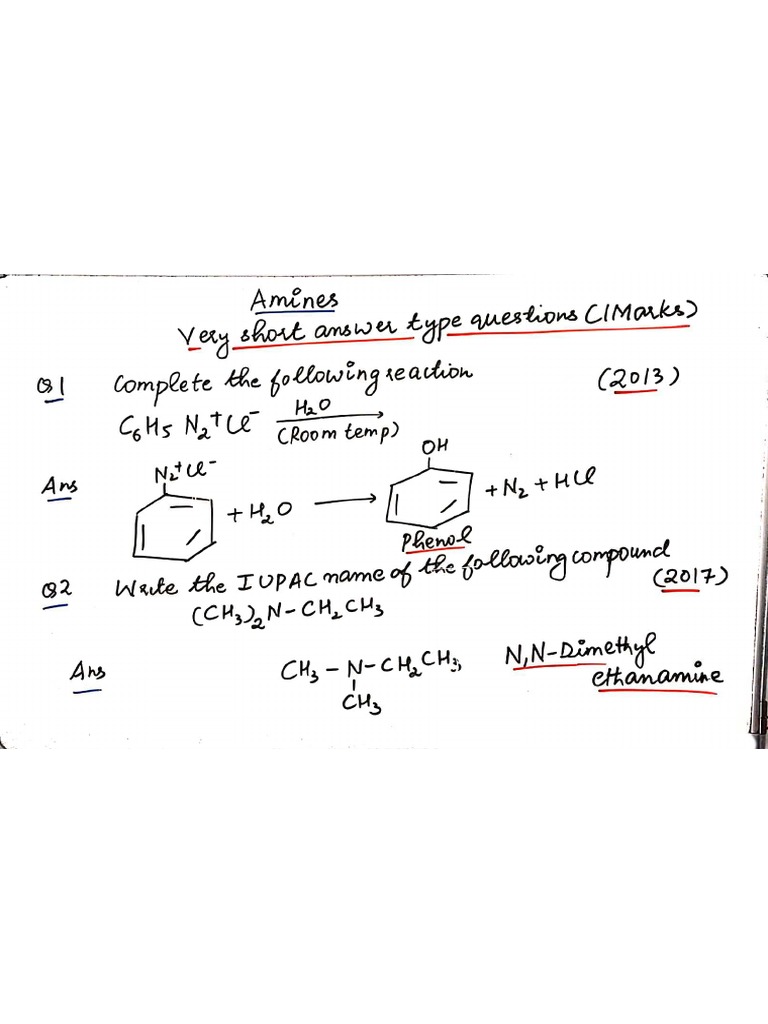 Amines
Very short answer type questions (1Marks)
Q1 Complete the following reaction (2013)
C₆H₅ N₂⁺Cl⁻ H₂O (Room temp)
Ans N₂⁺Cl⁻ + H₂O ⟶ OH + N₂ + HCl
Phenol
Q2 Write the IUPAC name of the following compound (2017)
(CH₃)₂N-CH₂CH₃
Ans CH₃-N-CH₂CH₃, N,N-Dimethyl
CH₃ ethanamine